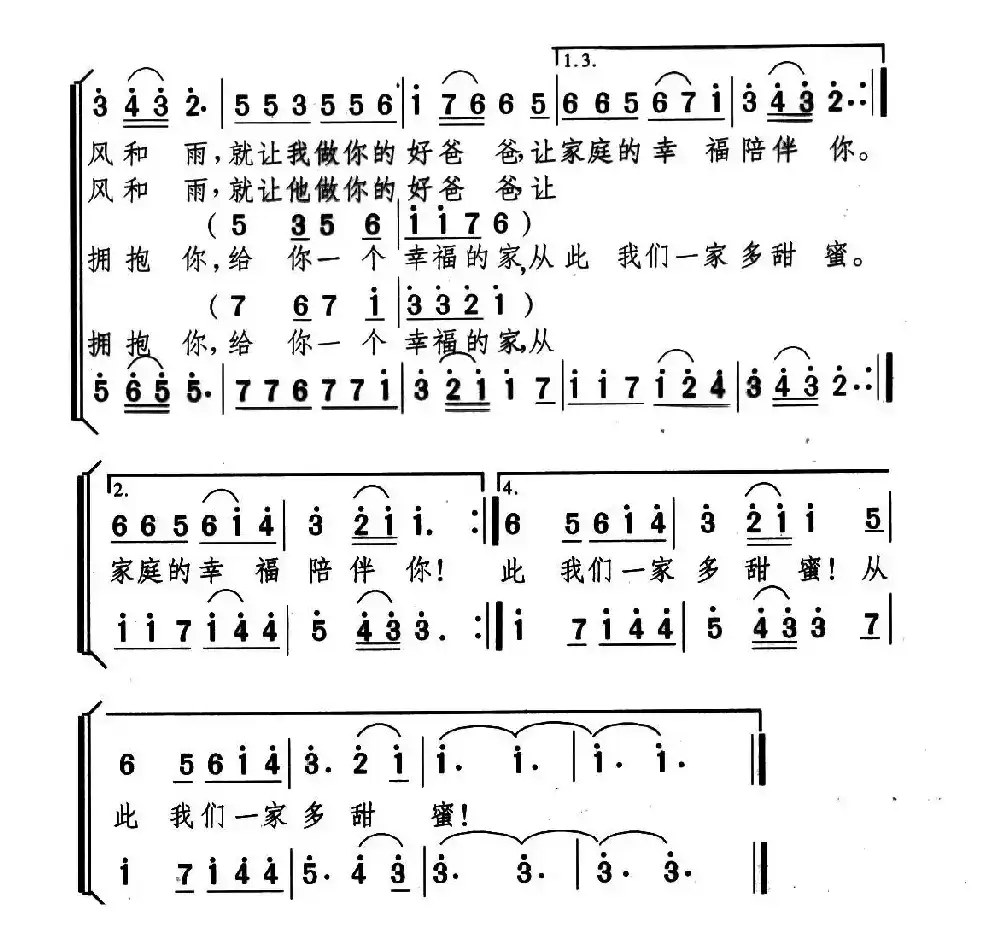 1.3.
3 4 3 2. | 5 5 3 5 5 6 | 1 7 6 6 5 | 6 6 5 6 7 1 | 3 4 3 2. :|
风和 雨,就让我做你的好爸 爸,让家庭的幸 福陪伴 你。
风和 雨,就让他做你的好爸 爸,让
( 5 3 5 6 | 1 1 7 6 )
拥抱 你,给 你一个 幸福的家,从此 我们一家多甜 蜜。
( 7 6 7 1 | 3 3 2 1 )
拥抱 你,给 你一个 幸福的家,从
5 6 5 5. | 7 7 6 7 7 1 | 3 2 1 1 7 | 1 1 7 1 2 4 | 3 4 3 2. :|
2. 4.
6 6 5 6 1 4 | 3 2 1 1. :| 6 5 6 1 4 | 3 2 1 1 5 |
家庭的幸 福 陪 伴 你! 此 我们一家 多 甜 蜜! 从
1 1 7 1 4 4 | 5 4 3 3. :| 1 7 1 4 4 | 5 4 3 3 7 |
6 5 6 1 4 | 3. 2 1 | 1. 1. | 1. 1. ‖
此 我们一家 多 甜 蜜!
1 7 1 4 4 | 5. 4 3 | 3. 3. | 3. 3. ‖